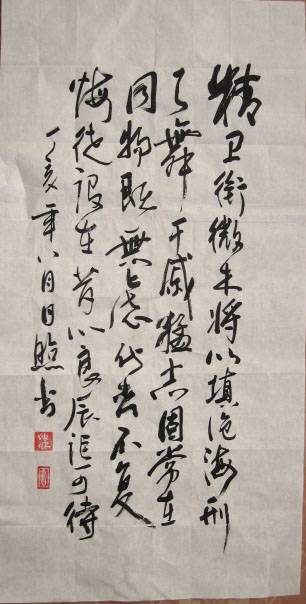 精卫衔微木将以填沧海刑
天舞干戚猛志固常在
同物既無虑化去不复
悔徒设在昔心良辰讵可待
丁亥年八月日照书